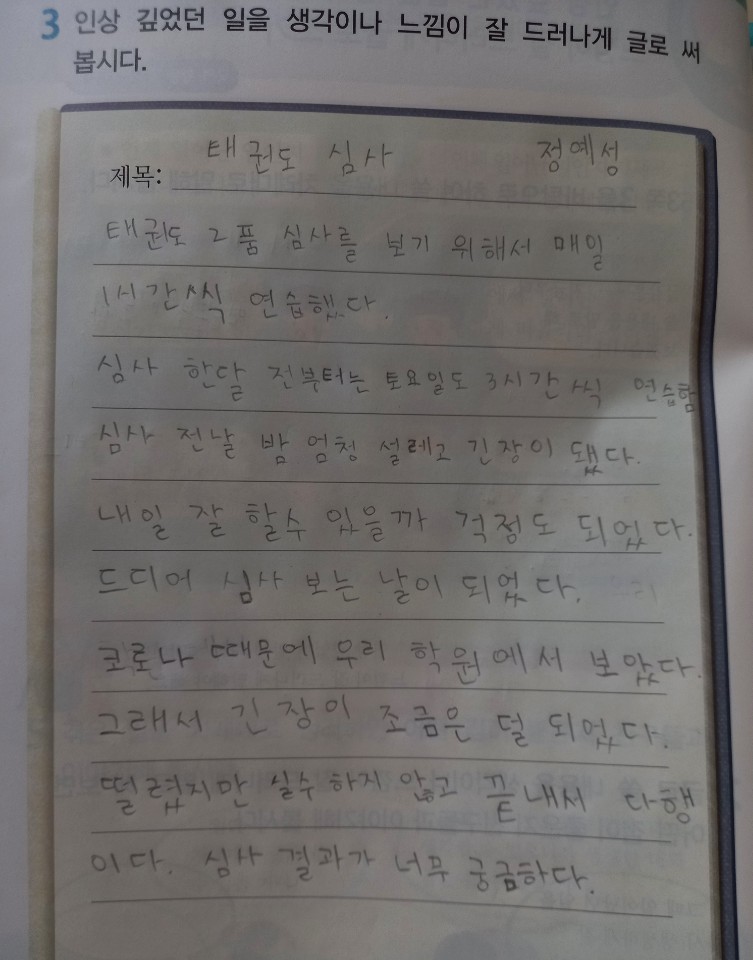 3 인상 깊었던 일을 생각이나 느낌이 잘 드러나게 글로 써
봅시다.
제목: 태권도 심사 정예성
태권도 2품 심사를 보기 위해서 매일
1시간씩 연습했다.
심사 한달 전부터는 토요일도 3시간씩 연습함
심사 전날 밤 엄청 설레고 긴장이 됐다.
내일 잘 할수 있을까 걱정도 되었다.
드디어 심사 보는 날이 되었다.
코로나 때문에 우리 학원에서 보았다.
그래서 긴장이 조금은 덜 되었다.
떨렸지만 실수하지 않고 끝내서 다행
이다. 심사 결과가 너무 궁금하다.